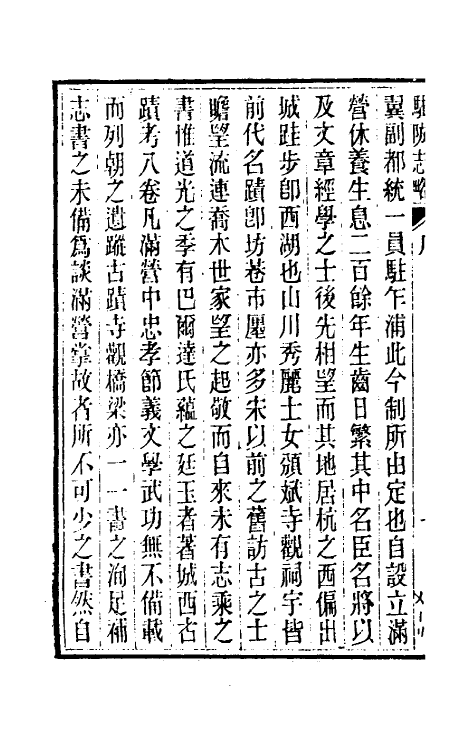 駐防志略
翼副都統一員駐乍浦此今制所由定也自設立滿
營休養生息二百餘年生齒日繁其中名臣名將以
及文章經學之士後先相望而其地居杭之西偏出
城跬步卽西湖也山川秀麗士女頒斌寺觀祠宇皆
前代名蹟卽坊巷市廛亦多宋以前之舊訪古之士
瞻望流連喬木世家望之起敬而自來未有志乘之
書惟道光之季有巴爾達氏蘊之廷玉者著城西古
蹟考八卷凡滿營中忠孝節義文學武功無不備載
而列朝之遺蹤古蹟寺觀橋梁亦一一書之洵足補
志書之未備爲談滿營掌故者所不可少之書然自